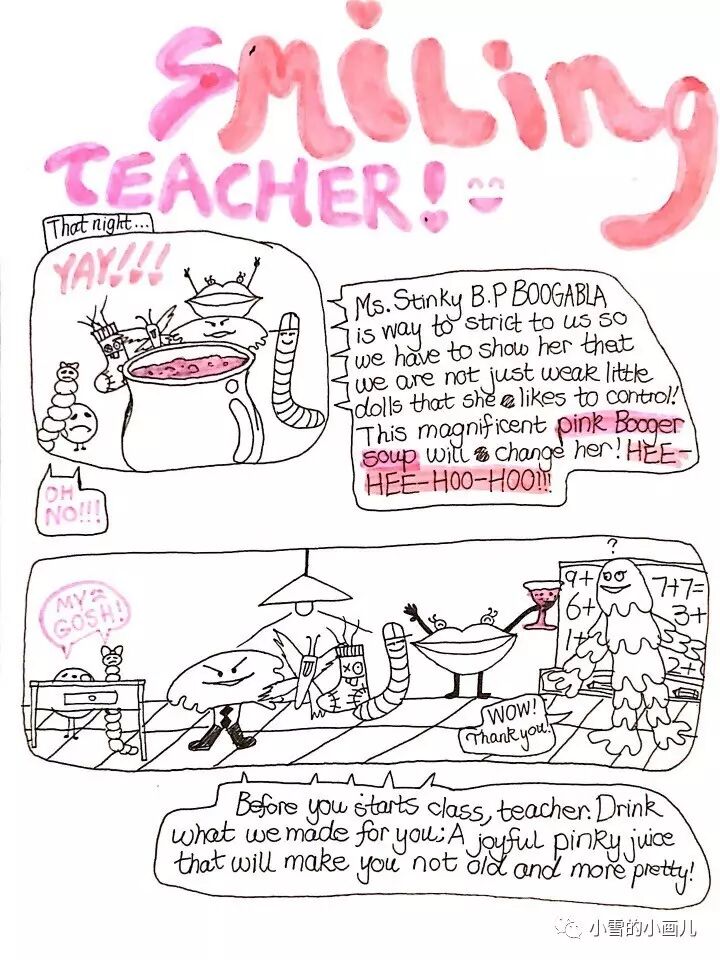 SMiLing
TEACHER!
That night...
YAY!!!
Ms. Stinky B.P BOOGABLA
is way to strict to us so
we have to show her that
we are not just weak little
dolls that she likes to control!
This magnificent pink Booger
soup will change her! HEE-
HEE-HOO-HOO!!!
OH
NO!!!
MY
GOSH!
?
9+
6+
1+
7+7=
3+
2+
WOW!
Thank you!
Before you starts class, teacher. Drink
what we made for you; A joyful pinky juice
that will make you not old and more pretty!
小雪的小画儿